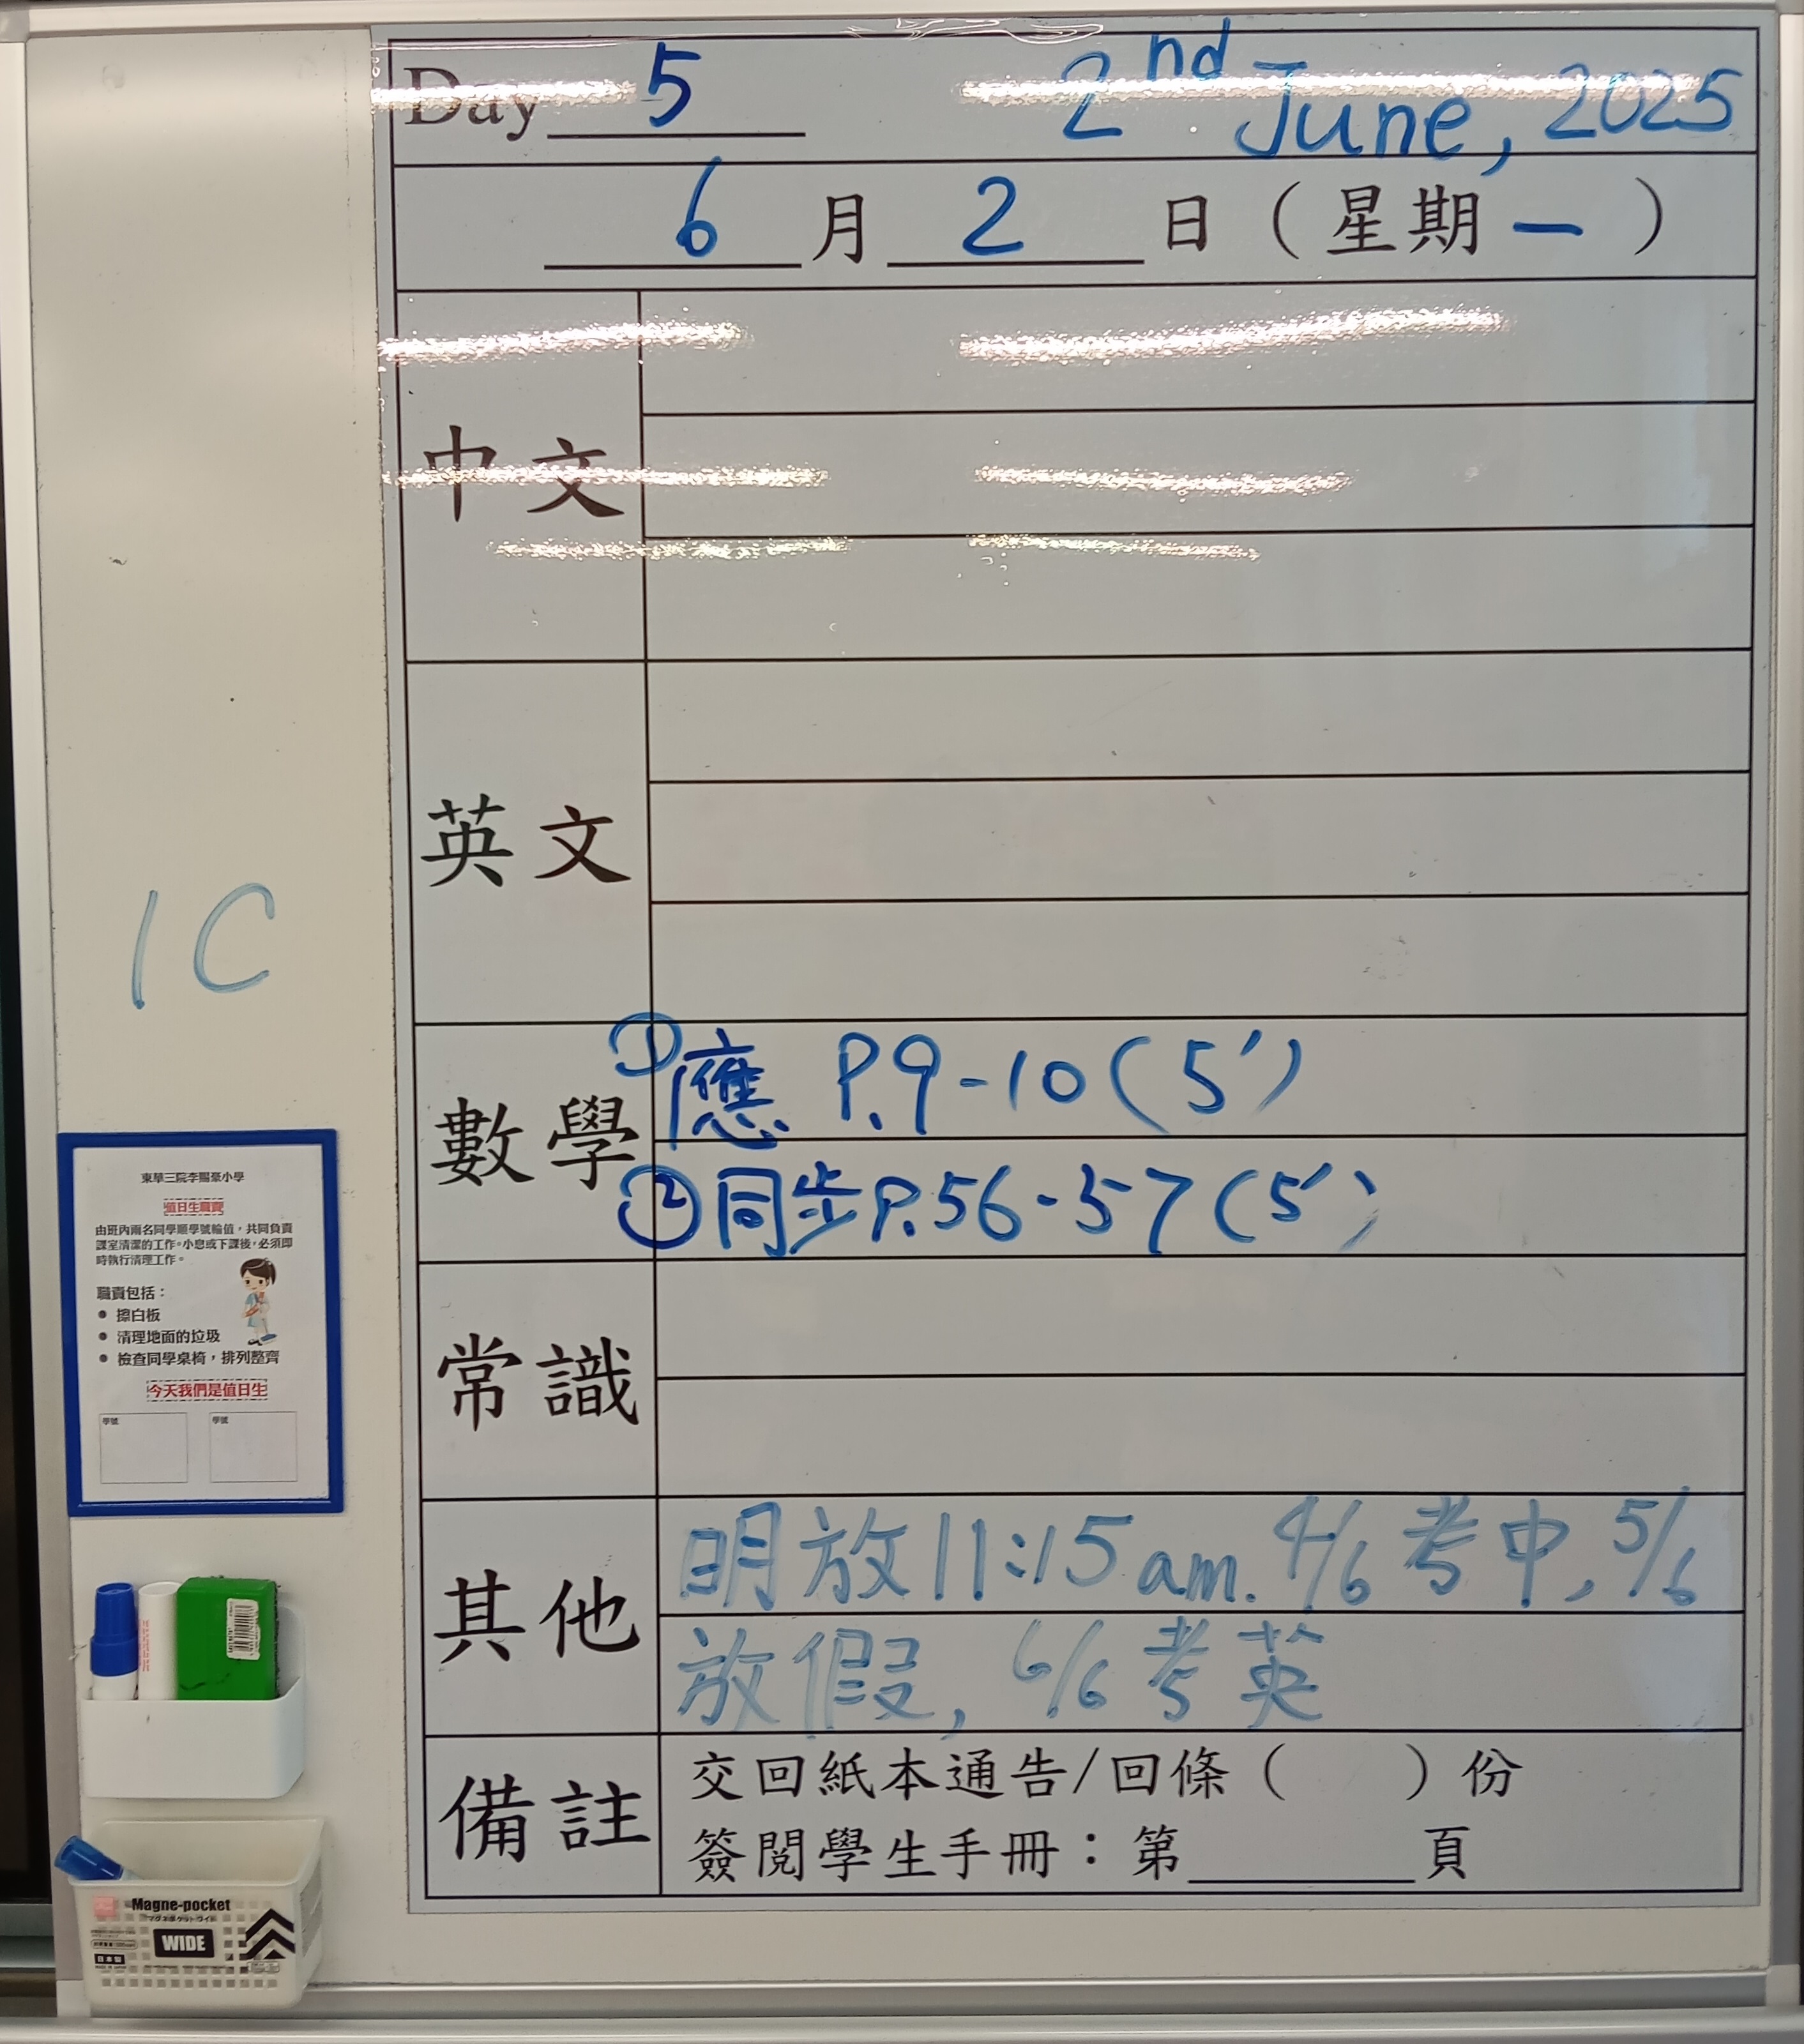 Day 5 2nd June, 2025
6 月 2 日（星期一）
中文
英文
1C
數學
①應 P.9-10(5')
②同步P.56-57(5')
常識
其他
明放11:15am. 4/6 考中, 5/6
放假, 6/6 考英
備註
交回紙本通告/回條（ ）份
簽閱學生手冊：第 頁
東華三院李賜豪小學
值日生職責
由班內兩名同學順學號輪值，共同負責
課室清潔的工作。小息或下課後，必須即
時執行清理工作。
職責包括：
● 擦白板
● 清理地面的垃圾
● 檢查同學桌椅，排列整齊
今天我們是值日生
學號 學號
Magne-pocket
マグネポケットワイド
WIDE
日本製